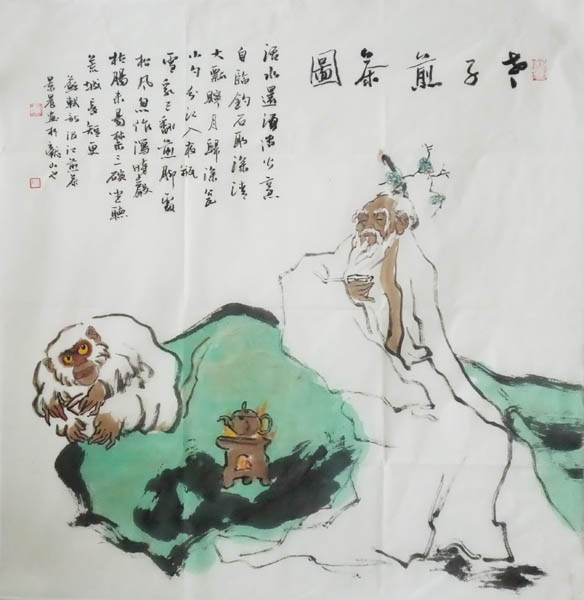 老子煎茶圖
活水還須活火烹
自臨釣石取深清
大瓢貯月歸瓮
小勺分江入夜瓶
雪乳已翻煎腳處
松風忽作瀉時聲
枯腸未易禁三碗坐聽
荒城長短更
蘇軾詩汲江煎茶
畫於山